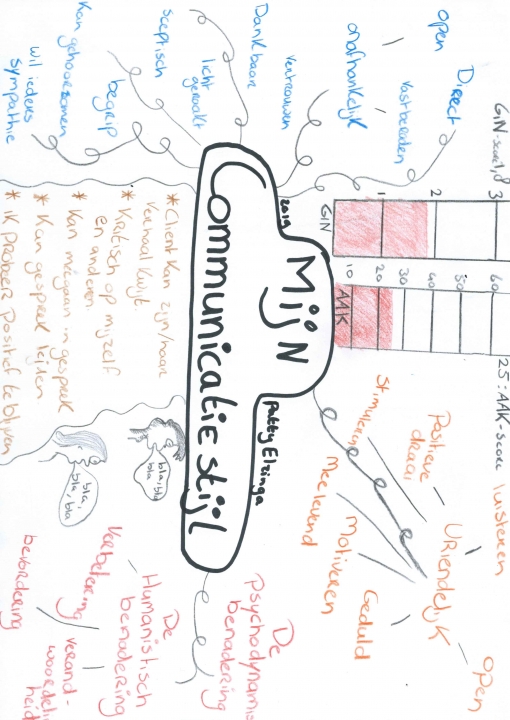 Mijn
Communicatie stijl
2019
Patty Elzinga
GIN-score 1,8
3
2
1
GIN
60
50
40
30
20
10
AAK
25: AAK-score
open
Direct
Vastberaden
onafhankelijk
vertrouwen
Dankbaar
licht
geraakt
sceptisch
begrip
Kan gehoorzamen
wil ieders
sympathie
* Client kan zijn/haar
verhaal kwijt.
* Kritisch op myzelf
en anderen
* Kan meegaan in gesprek
* Kan gesprek leiden
* ik probeer positief te blijven
bla, bla
bla
bla,
bla, bla
luisteren
Positieve
draai
Stimulering
Vriendelijk
open
Meelevend
Motiveren
Geduld
De
Psychodynamis
benadering
De
Humanistisch
benadering
Verbetering
verand-
woordelij
heid
bevordering